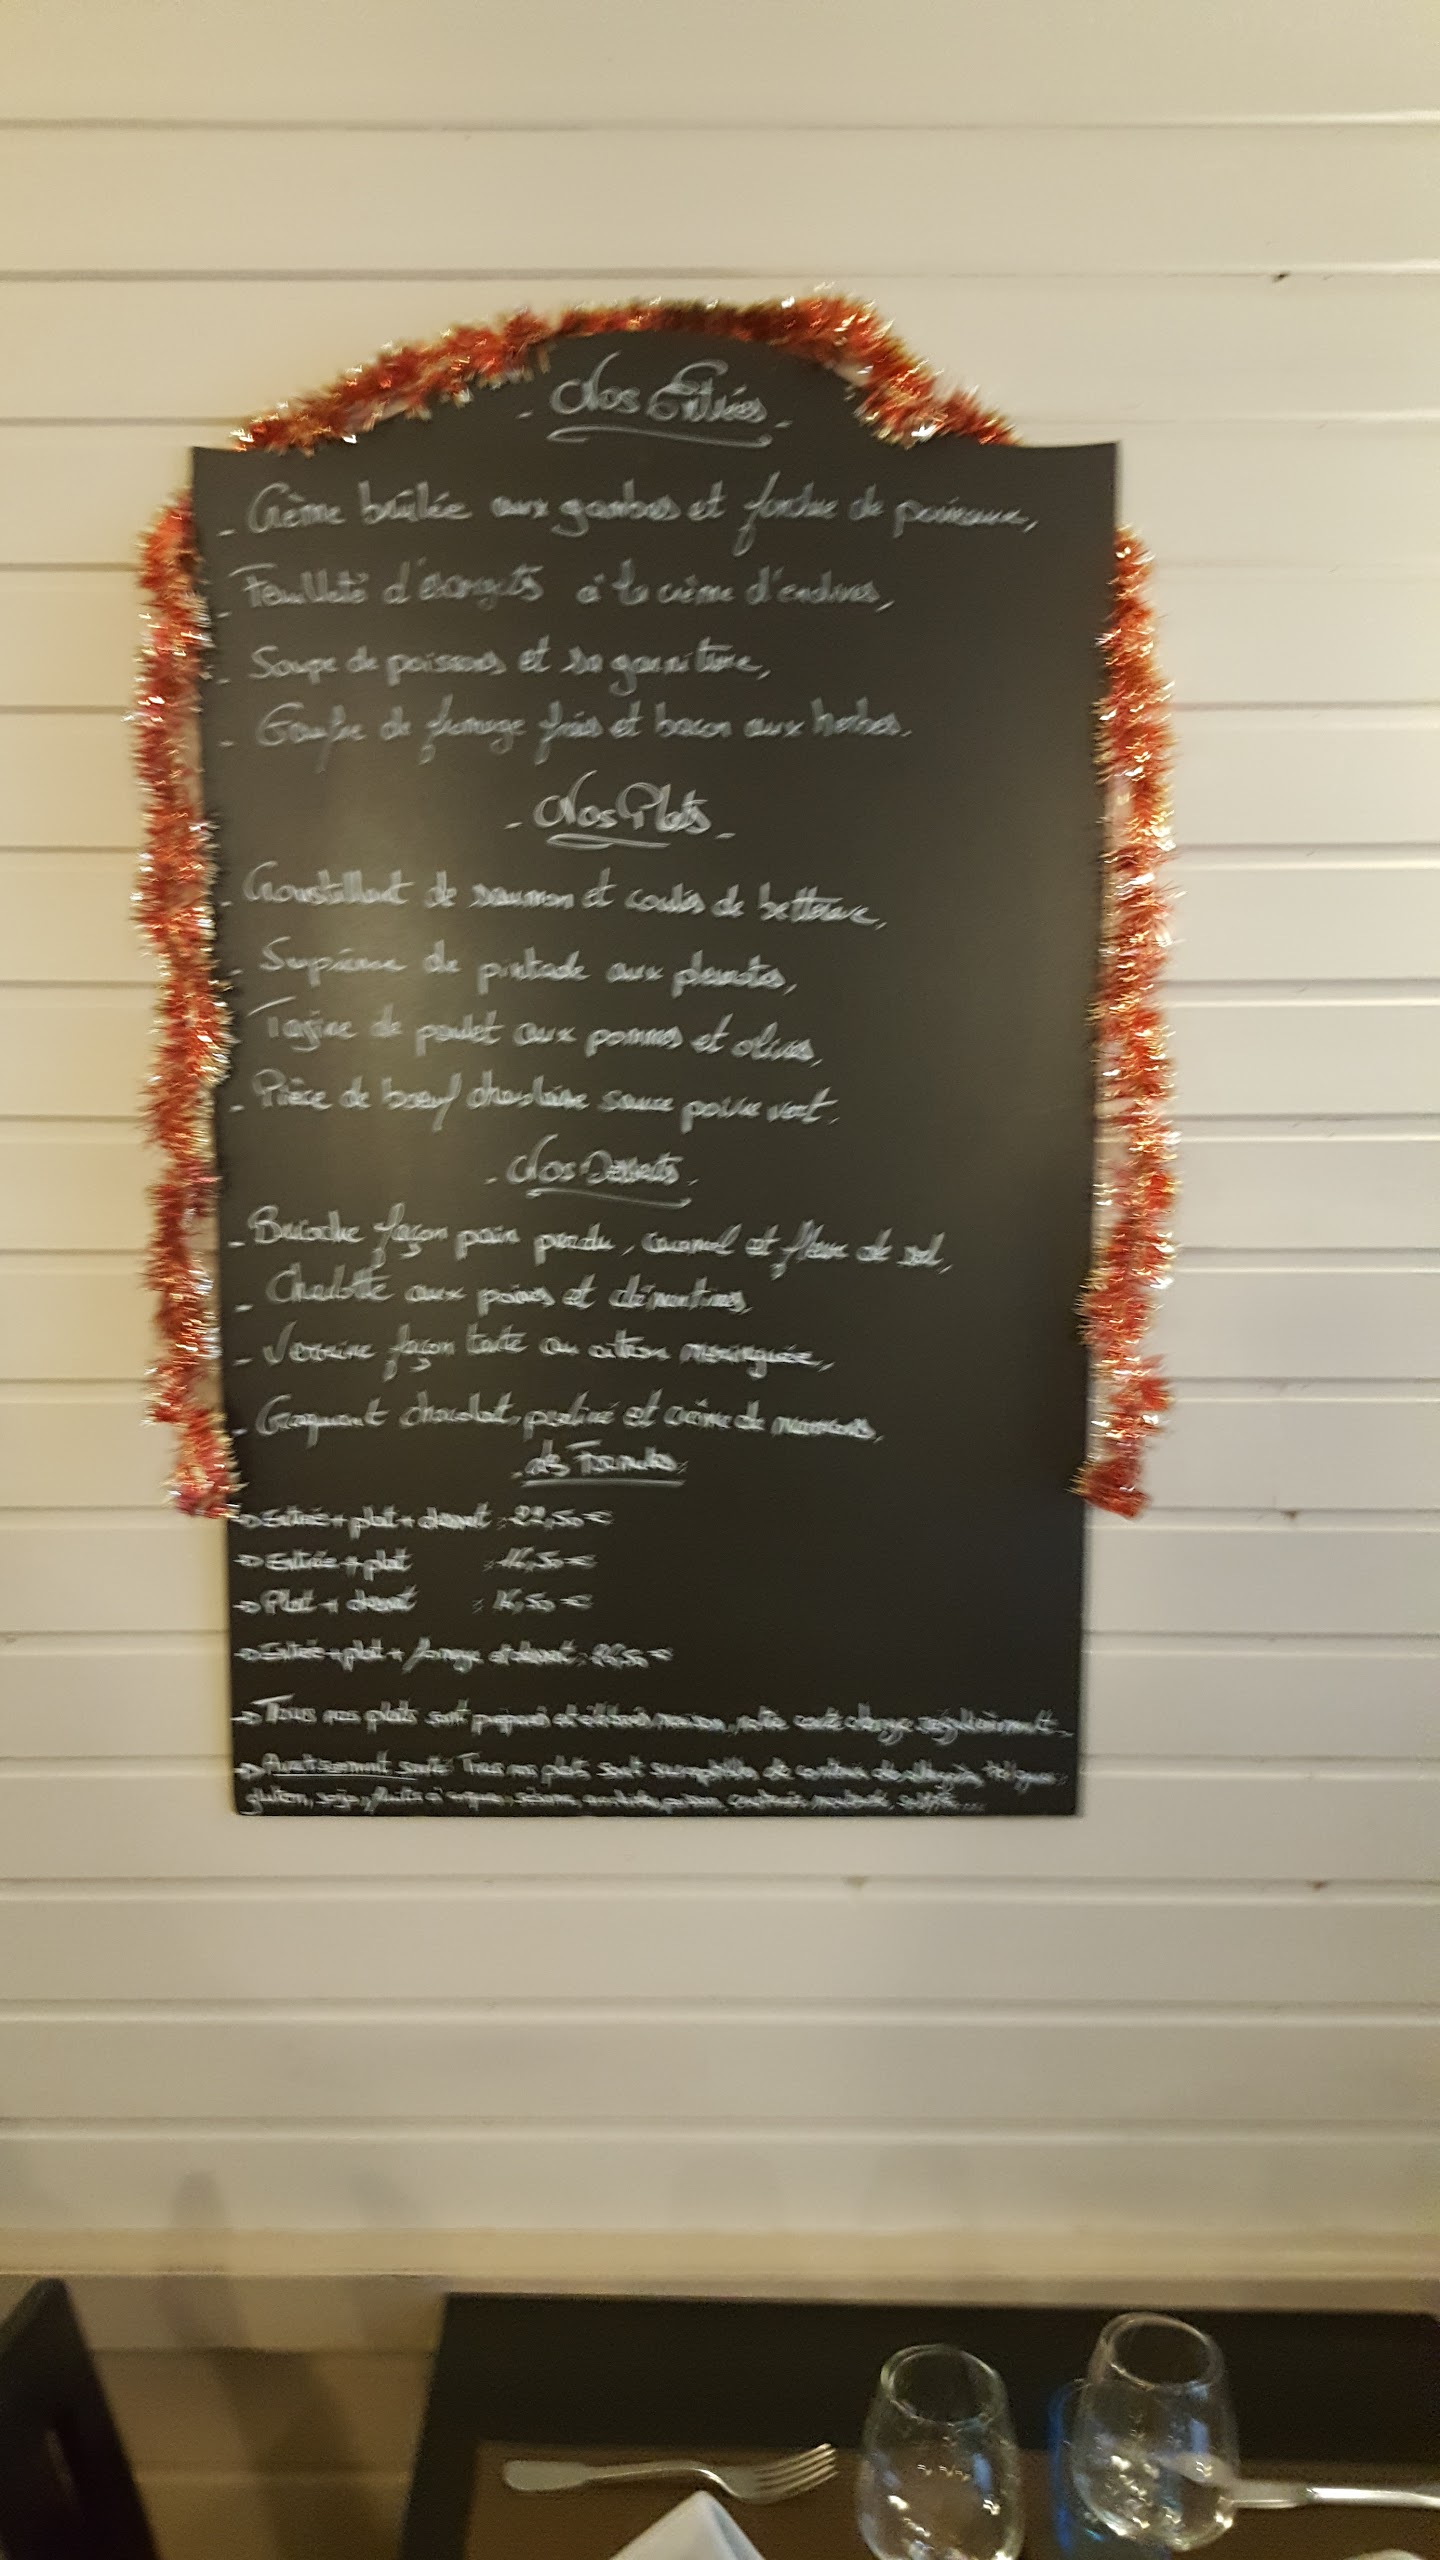 - Nos Entrées -
- Crème brûlée aux gambas et fondue de poireaux,
- Feuilleté d'escargots à la crème d'endives,
- Soupe de poissons et sa garniture,
- Gaufre de fromage frais et bacon aux herbes.
- Nos Plats -
- Croustillant de saumon et coulis de betterave,
- Suprême de pintade aux pleurotes,
- Tagine de poulet aux pommes et olives,
- Pièce de boeuf charolaise sauce poivre vert.
- Nos Desserts -
- Brioche façon pain perdu, caramel et fleur de sel,
- Charlotte aux poires et clémentines,
- Verrine façon tarte au citron meringuée,
- Craquant chocolat, praliné et crème de marrons,
- Les Formules
→ Entrée + plat + dessert : 22,50 €
→ Entrée + plat : 16,50 €
→ Plat + dessert : 16,50 €
→ Entrée + plat + fromage et dessert :
→ Tous nos plats sont préparés et élaborés maison, notre carte change régulièrement.
→ Avertissement santé : Tous nos plats sont susceptibles de contenir des allergènes,
gluten, soja, fruits à coques, sésame, poisson, moutarde, sulfite...